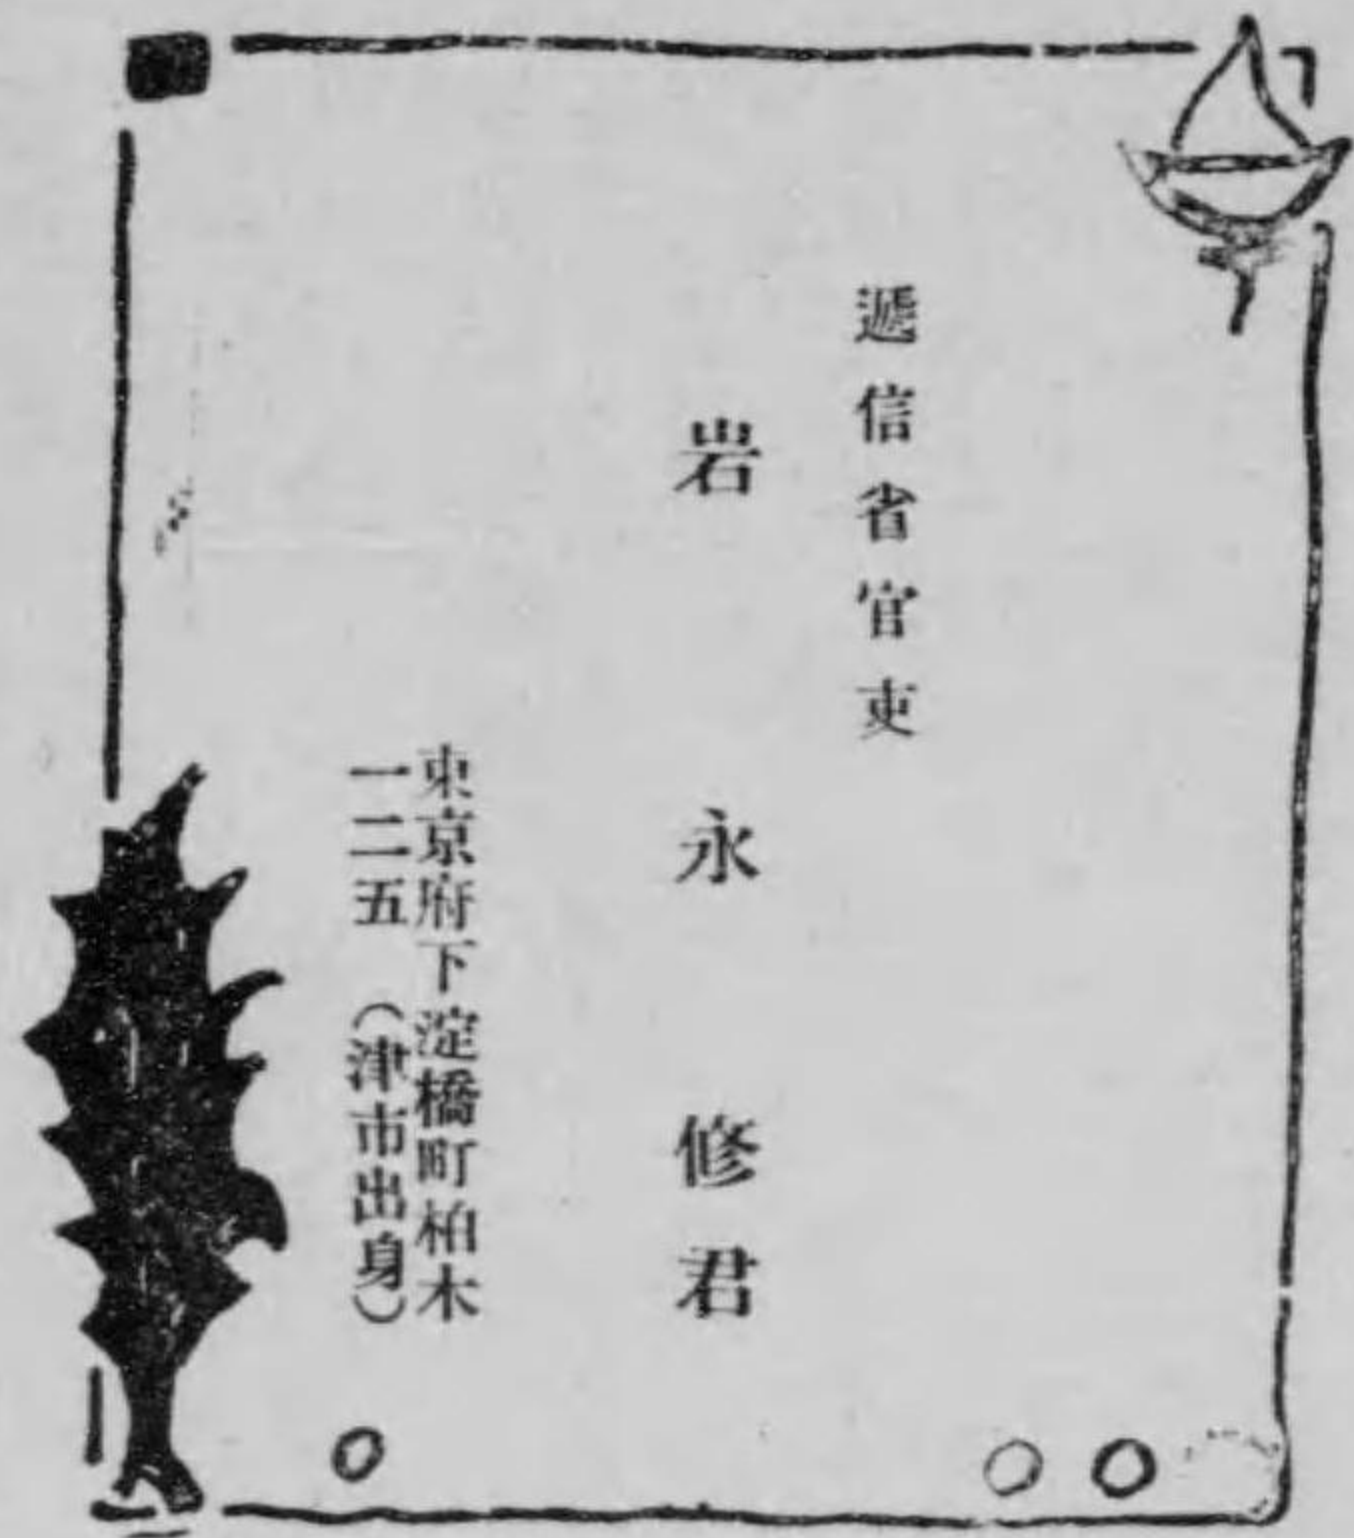 遞信省官吏
岩永修君
東京府下淀橋町柏木
一二五（津市出身）